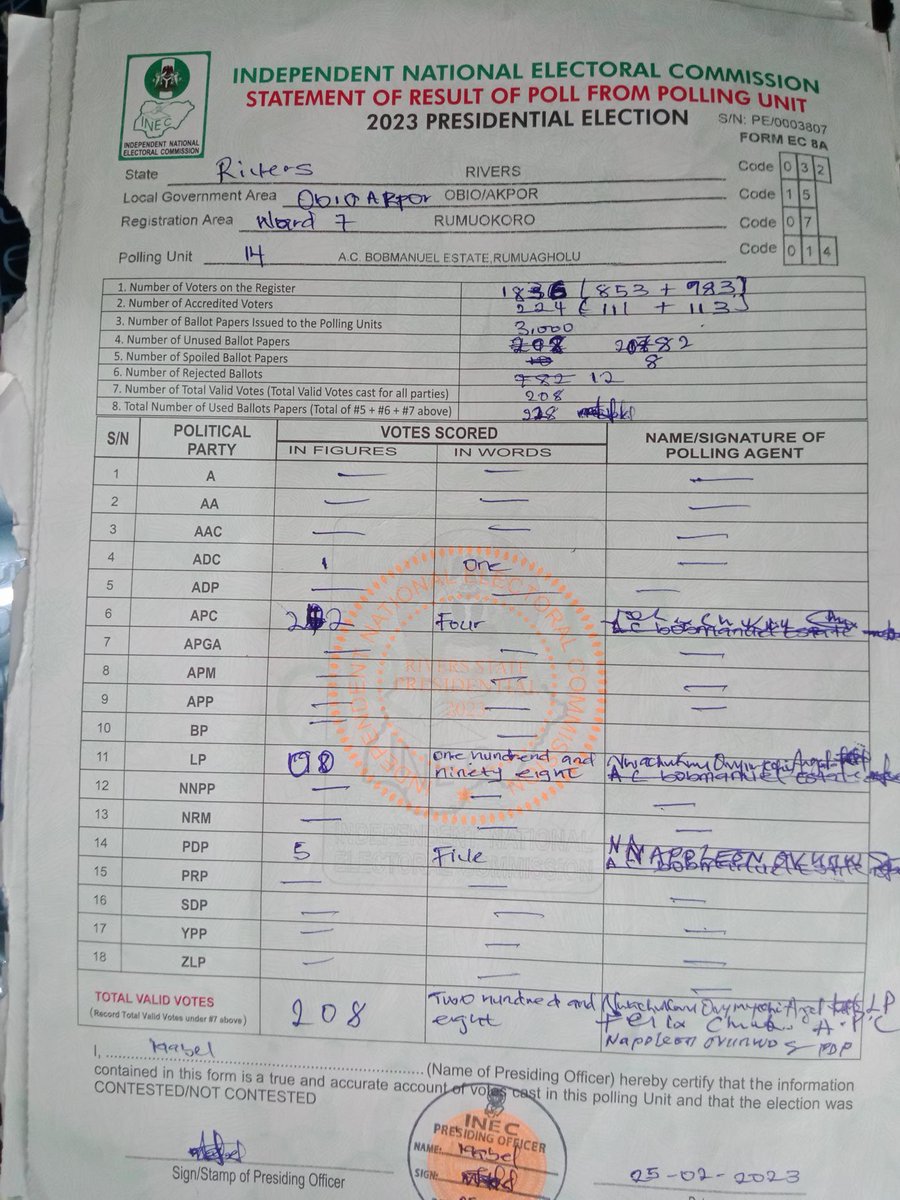 INDEPENDENT NATIONAL ELECTORAL COMMISSION
STATEMENT OF RESULT OF POLL FROM POLLING UNIT
2023 PRESIDENTIAL ELECTION
S/N: PE/0003807
FORM EC 8A
INEC
INDEPENDENT NATIONAL
ELECTORAL COMMISSION
State Rivers RIVERS Code 0 3 2
Local Government Area OBIO AKPOR OBIO/AKPOR Code 1 5
Registration Area Ward 7 RUMUOKORO Code 0 7
Polling Unit 14 A.C. BOBMANUEL ESTATE,RUMUAGHOLU Code 0 1 4
1. Number of Voters on the Register 1836 (853 + 983)
2. Number of Accredited Voters 224 ( 111 + 113)
3. Number of Ballot Papers Issued to the Polling Units 3,000
4. Number of Unused Ballot Papers 208
5. Number of Spoiled Ballot Papers 10 8
6. Number of Rejected Ballots 782 12
7. Number of Total Valid Votes (Total Valid Votes cast for all parties) 208
8. Total Number of Used Ballots Papers (Total of #5 + #6 + #7 above) 228
S/N POLITICAL PARTY VOTES SCORED NAME/SIGNATURE OF POLLING AGENT
IN FIGURES IN WORDS
1 A — — —
2 AA — — —
3 AAC — — —
4 ADC 1 One —
5 ADP — — —
6 APC Four
7 APGA — — —
8 APM — — —
9 APP — — —
10 BP — —
11 LP one hundrend and ninety eight A C bobmanuel Estate
12 NNPP — — —
13 NRM — — —
14 PDP 5 Five
15 PRP — —
16 SDP — — —
17 YPP — — —
18 ZLP — — —
TOTAL VALID VOTES
(Record Total Valid Votes under #7 above)
208 Two hundred and eight
LP
Felix A.P.C
Napoleon PDP
RIVERS STATE
PRESIDENTIAL
2023
INDEPENDENT NATIONAL ELECTORAL COMMISSION
INDEPENDENT NATIONAL
ELECTORAL COMMISSION
I, (Name of Presiding Officer) hereby certify that the information
contained in this form is a true and accurate account of votes cast in this polling Unit and that the election was
CONTESTED/NOT CONTESTED
Sign/Stamp of Presiding Officer
INEC
PRESIDING OFFICER
NAME:
SIGN:
25-02-2023